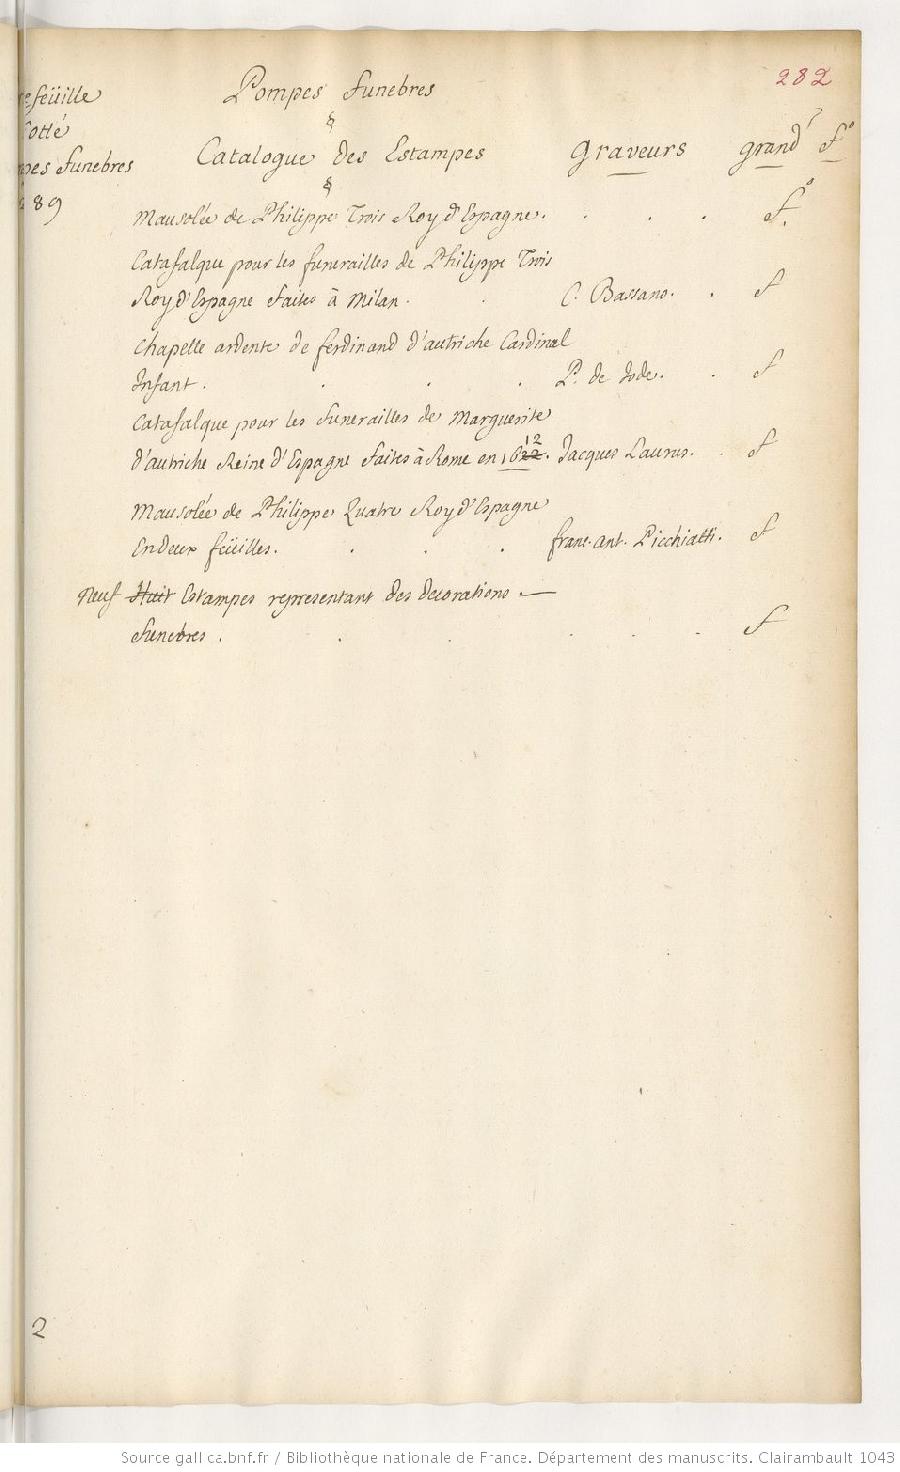 282
efeüille
otté
pes funebres
289
Pompes funebres
§
Catalogue des Estampes Graveurs grand' f.°
§
Mausolée de Philippe Trois Roy d'Espagne. . . . f.°
Catafalque pour les funerailles de Philippe Trois
Roy d'Espagne faites à Milan. . C. Bassano. . f
Chapelle ardente de ferdinand d'autriche Cardinal
Infant. . . . P. de Jode. . f
Catafalque pour les funerailles de Marguerite
12
d'autriche Reine d'Espagne faites à Rome en 1622. Jacques Laurus. f
Mausolée de Philippe Quatre Roy d'Espagne
En deux feüilles. . . . franc. ant. Picchiatti. f
neuf Huit Estampes representant des decorations. —
funebres . . . . . . f
2
Source gallica.bnf.fr / Bibliothèque nationale de France. Département des manuscrits. Clairambault 1043